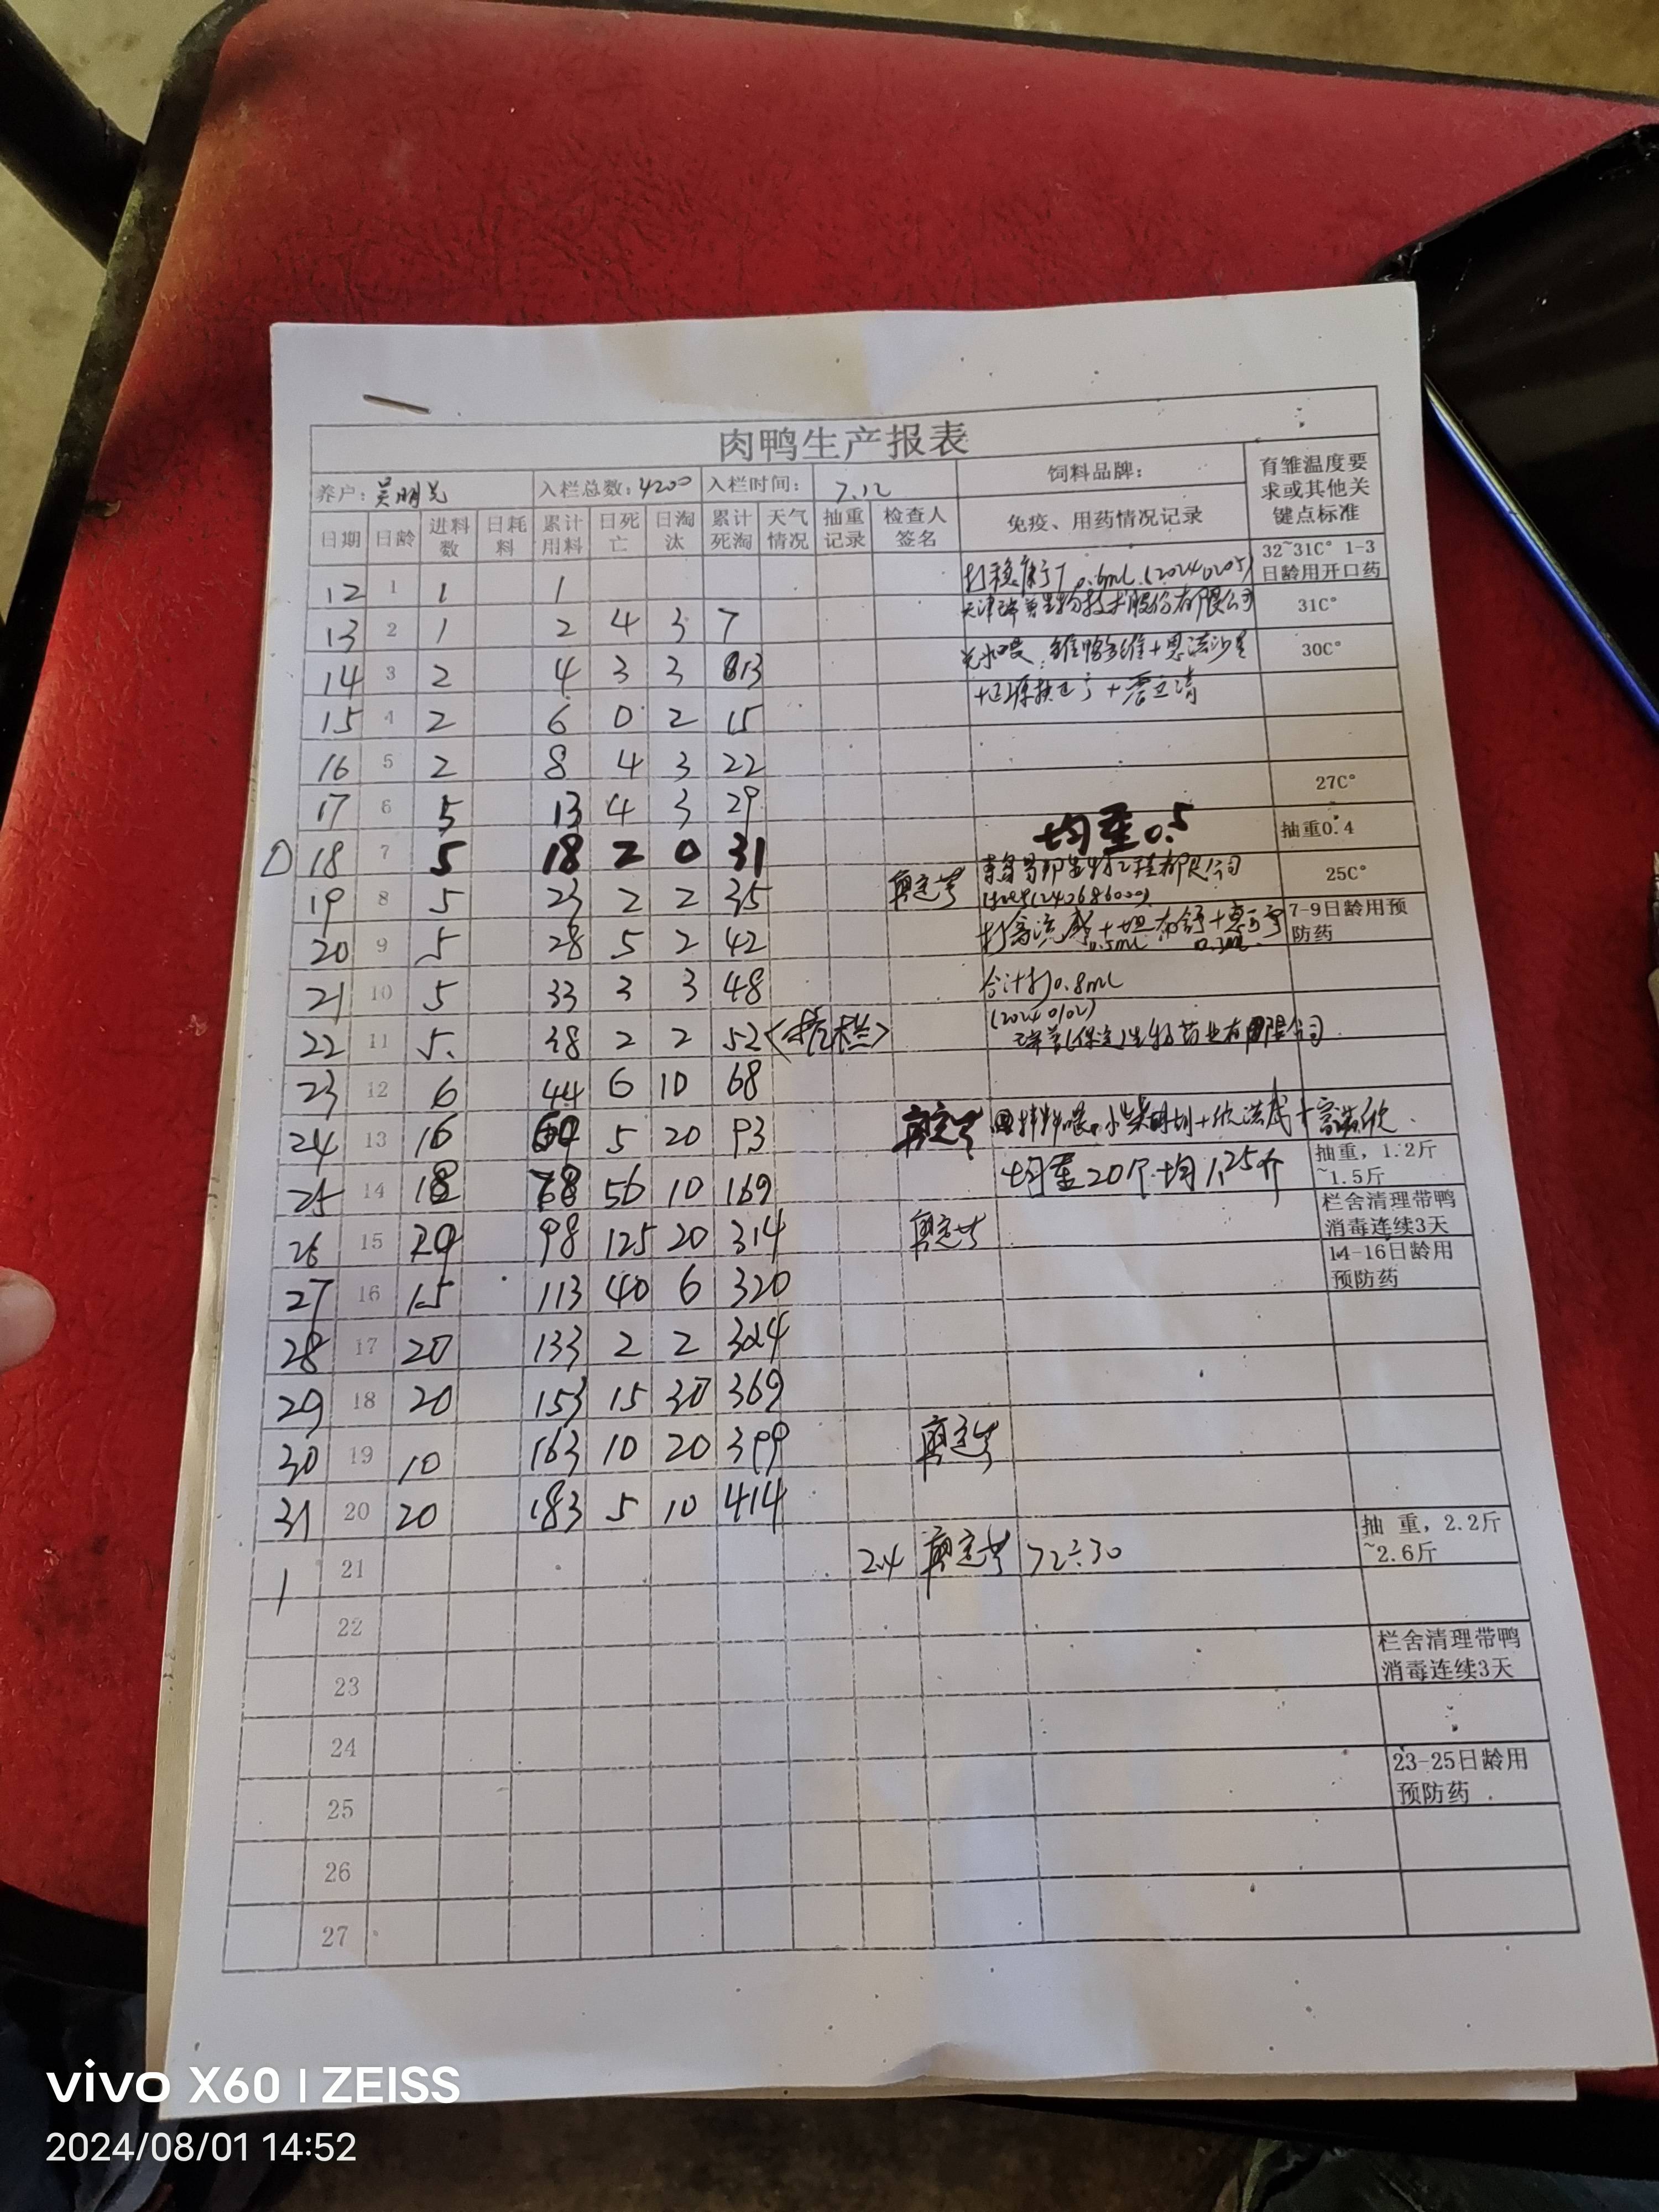 肉鸭生产报表
养户: 吴明 入栏总数: 4200 入栏时间: 7.12 饲料品牌: 育雏温度要求或其他关键点标准
日期 日龄 进料数 日耗料 累计用料 日死亡 日淘汰 累计死淘 天气情况 抽重记录 检查人签名 免疫、用药情况记录
12 1 1 1 0.6mL (20240205) 32~31C° 1-3日龄用开口药
13 2 1 2 4 3 7 天津瑞普生物技术股份有限公司 31C°
14 3 2 4 3 3 13 30C°
15 4 2 6 0 2 15
16 5 2 8 4 3 22
17 6 5 13 4 3 29 27C°
18 7 5 18 2 0 31 均重0.5 抽重0.4
19 8 5 23 2 2 35 25C°
20 9 5 28 5 2 42 打禽流感 0.5mL 7-9日龄用预防药
21 10 5 33 3 3 48 合计打0.8mL
22 11 5. 38 2 2 52 瑞普(保定)生物药业有限公司
23 12 6 44 6 10 68
24 13 16 5 20 93 拌料喂
25 14 18 78 56 10 169 均重20个均1.25斤 抽重, 1.2斤~1.5斤
26 15 20 98 125 20 314 栏舍清理带鸭消毒连续3天
27 16 15 113 40 6 320 14-16日龄用预防药
28 17 20 133 2 2 324
29 18 20 153 15 30 369
30 19 10 163 10 20 399
31 20 20 183 5 10 414
1 21 2.4 72÷30 抽 重, 2.2斤~2.6斤
22
23 栏舍清理带鸭消毒连续3天
24
25 23-25日龄用预防药
26
27
vivo X60 | ZEISS
2024/08/01 14:52